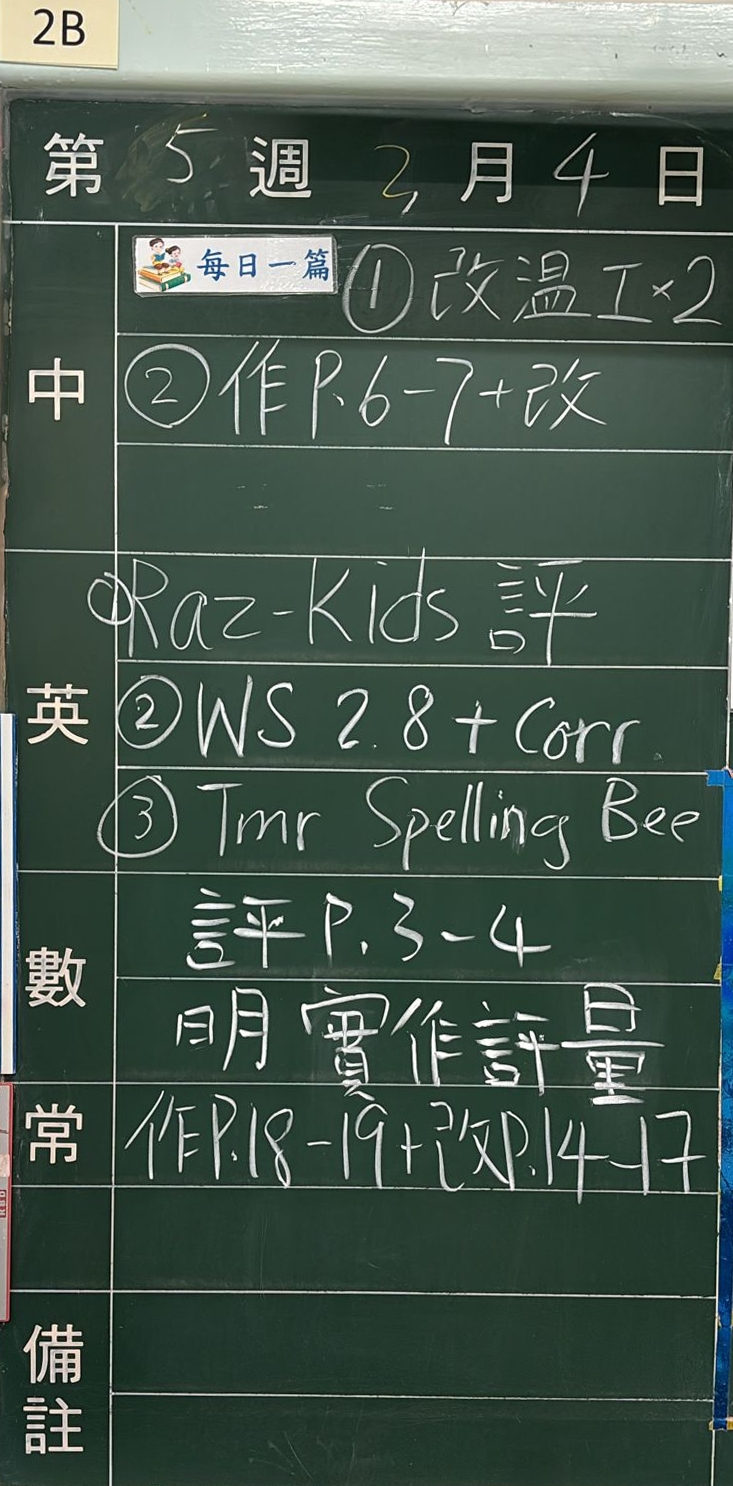 2B
第 5 週 2 月 4 日
每日一篇 ① 改溫工×2
中
② 作P.6-7+改
① Raz-Kids 評
英
② WS 2.8 + Corr.
③ Tmr Spelling Bee
評P.3-4
數
明實作評量
常
作P.18-19+改P.14-17
備註
RBD